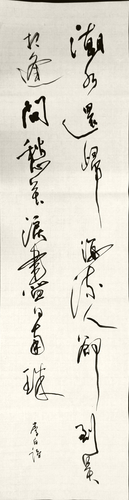 潮水還歸海流人卻到吴
相逢問愁苦淚盡日南珠
李白詩